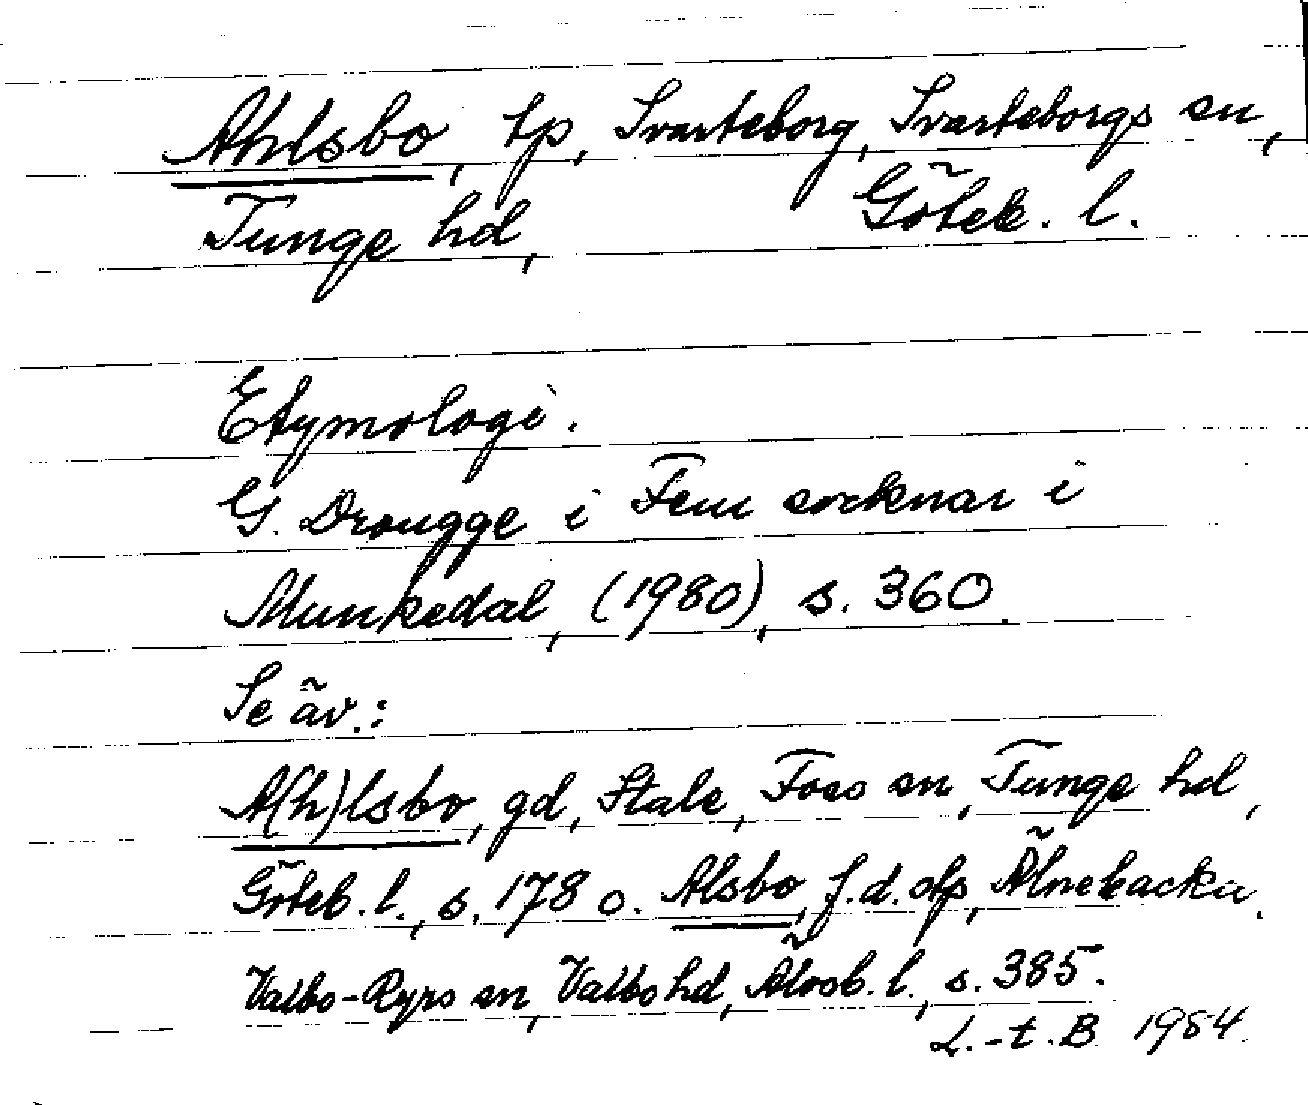 Ahlsbo, tp, Svarteborg, Svarteborgs sn,
Tunge hd, Göteb. l.
Etymologi.
G. Drougge i Fem socknar i
Munkedal, (1980), s. 360.
Se äv.:
A(h)lsbo, gd, Stale, Foss sn, Tunge hd,
Göteb. l., s. 178 o. Alsbo, f.d. dp, Älnebacka,
Valbo-Ryrs sn, Valbo hd, Älvsb. l., s. 385.
L.-t. B. 1984.